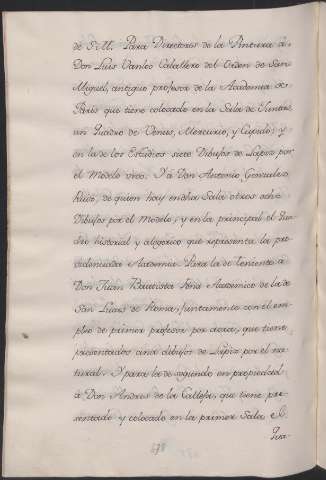 de S. M. Para Directores de la Pintura a
Don Luis Vanloo Caballero del Orden de San
Miguel, antiguo profesor de la Academia de
Paris que tiene colocado en la Sala de Juntas
un Quadro de Venus, Mercurio, y Cupido: y
en la de los Estudios siete Dibujos de Lapiz por
el Modelo vivo. Y a Don Antonio Gonzalez
Ruiz, de quien hay en dha Sala otros ocho
Dibujos por el Modelo, y en la principal el Qua
dro historial y alegorico que representa la pre
Academia. Para la de Teniente a
Don Juan Bautista Academico de la de
San Lucas de Roma, juntamente con el em
pleo de primer profesor por ahora, que tiene
presentados cinco dibujos de Lapiz por el na
tural. Y para la de segundo en propiedad
a Don Andres de la Calleja, que tiene pre
sentado y colocado en la primer Sala el
Qua-